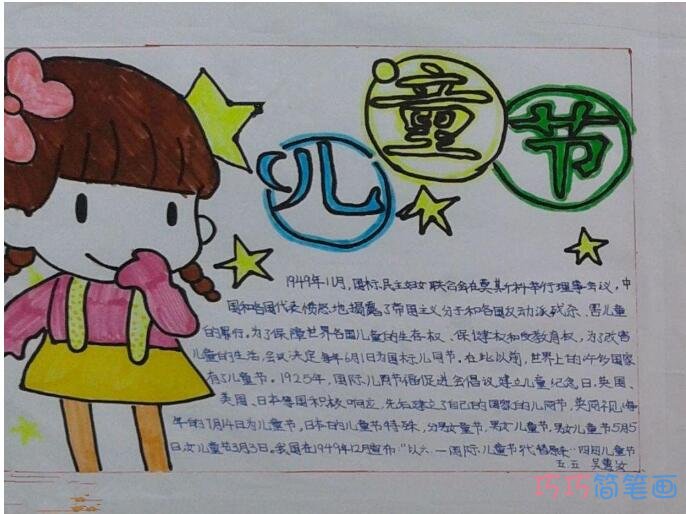 儿童节
1949年11月,国际民主妇女联合会在莫斯科举行理事会议,中
国和各国代表愤怒地揭露了帝国主义分子和各国反动派残杀、害儿童
的罪行。为了保障世界各国儿童的生存权、保健权和受教育权,为了改善
儿童的生活,会议决定每年6月1日为国际儿同节。在此以前,世界上的许多国家
有了儿童节。1925年,国际儿童节福促进会倡议建立儿童纪念日,英国、
美国、日本等国积极响应,先后建立了自己的国家的儿童节,英国规
年的7月14日为儿童节,日本的儿童节特殊,分男女童节,男女儿童节,男儿童节5月5
日,女儿童节3月3日。我国在1949年12月宣布:"以六.一国际儿童节代替 四四儿童节
五.五 吴
巧巧简笔画